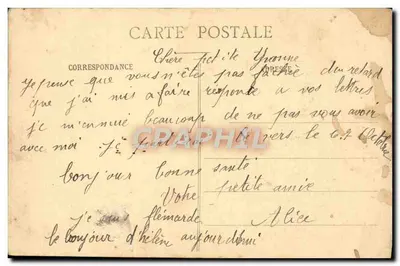 CARTE POSTALE
CORRESPONDANCE
Chère petite Yvonne
Je pense que vous n'êtes pas fâchée du retard
que j'ai mis a faire réponse a vos lettres
je m'ennuie beaucoup de ne pas vous avoir
avec moi Je vers le 04 Octobre
CARAPHIL
bonjour bonne santé
Votre petite amie
Alice
je suis flémarde
le bonjour d'hélène aujourd'hui